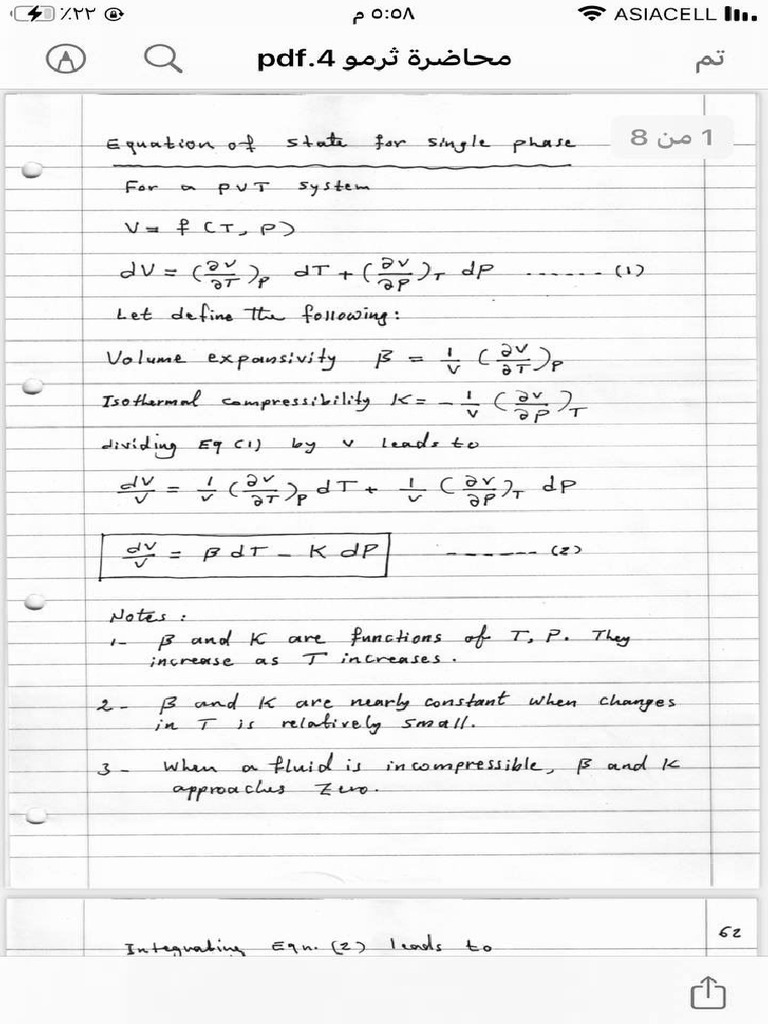 ٪٢٢ ٥:٥٨ م ASIACELL
محاضرة ثرمو 4.pdf
تم
1 من 8
Equation of state for single phase
For a PVT system
V = f (T, P)
dV = (∂V/∂T)_P dT + (∂V/∂P)_T dP ------ (1)
Let define the following:
Volume expansivity β = 1/V (∂V/∂T)_P
Isothermal compressibility K = - 1/V (∂V/∂P)_T
dividing Eq (1) by V leads to
dV/V = 1/V (∂V/∂T)_P dT + 1/V (∂V/∂P)_T dP
dV/V = β dT - K dP ------- (2)
Notes :
1- β and K are functions of T, P. They
increase as T increases.
2- β and K are nearly constant when changes
in T is relatively small.
3- When a fluid is incompressible, β and K
approaches Zero.
62
Integrating Eqn. (2) leads to